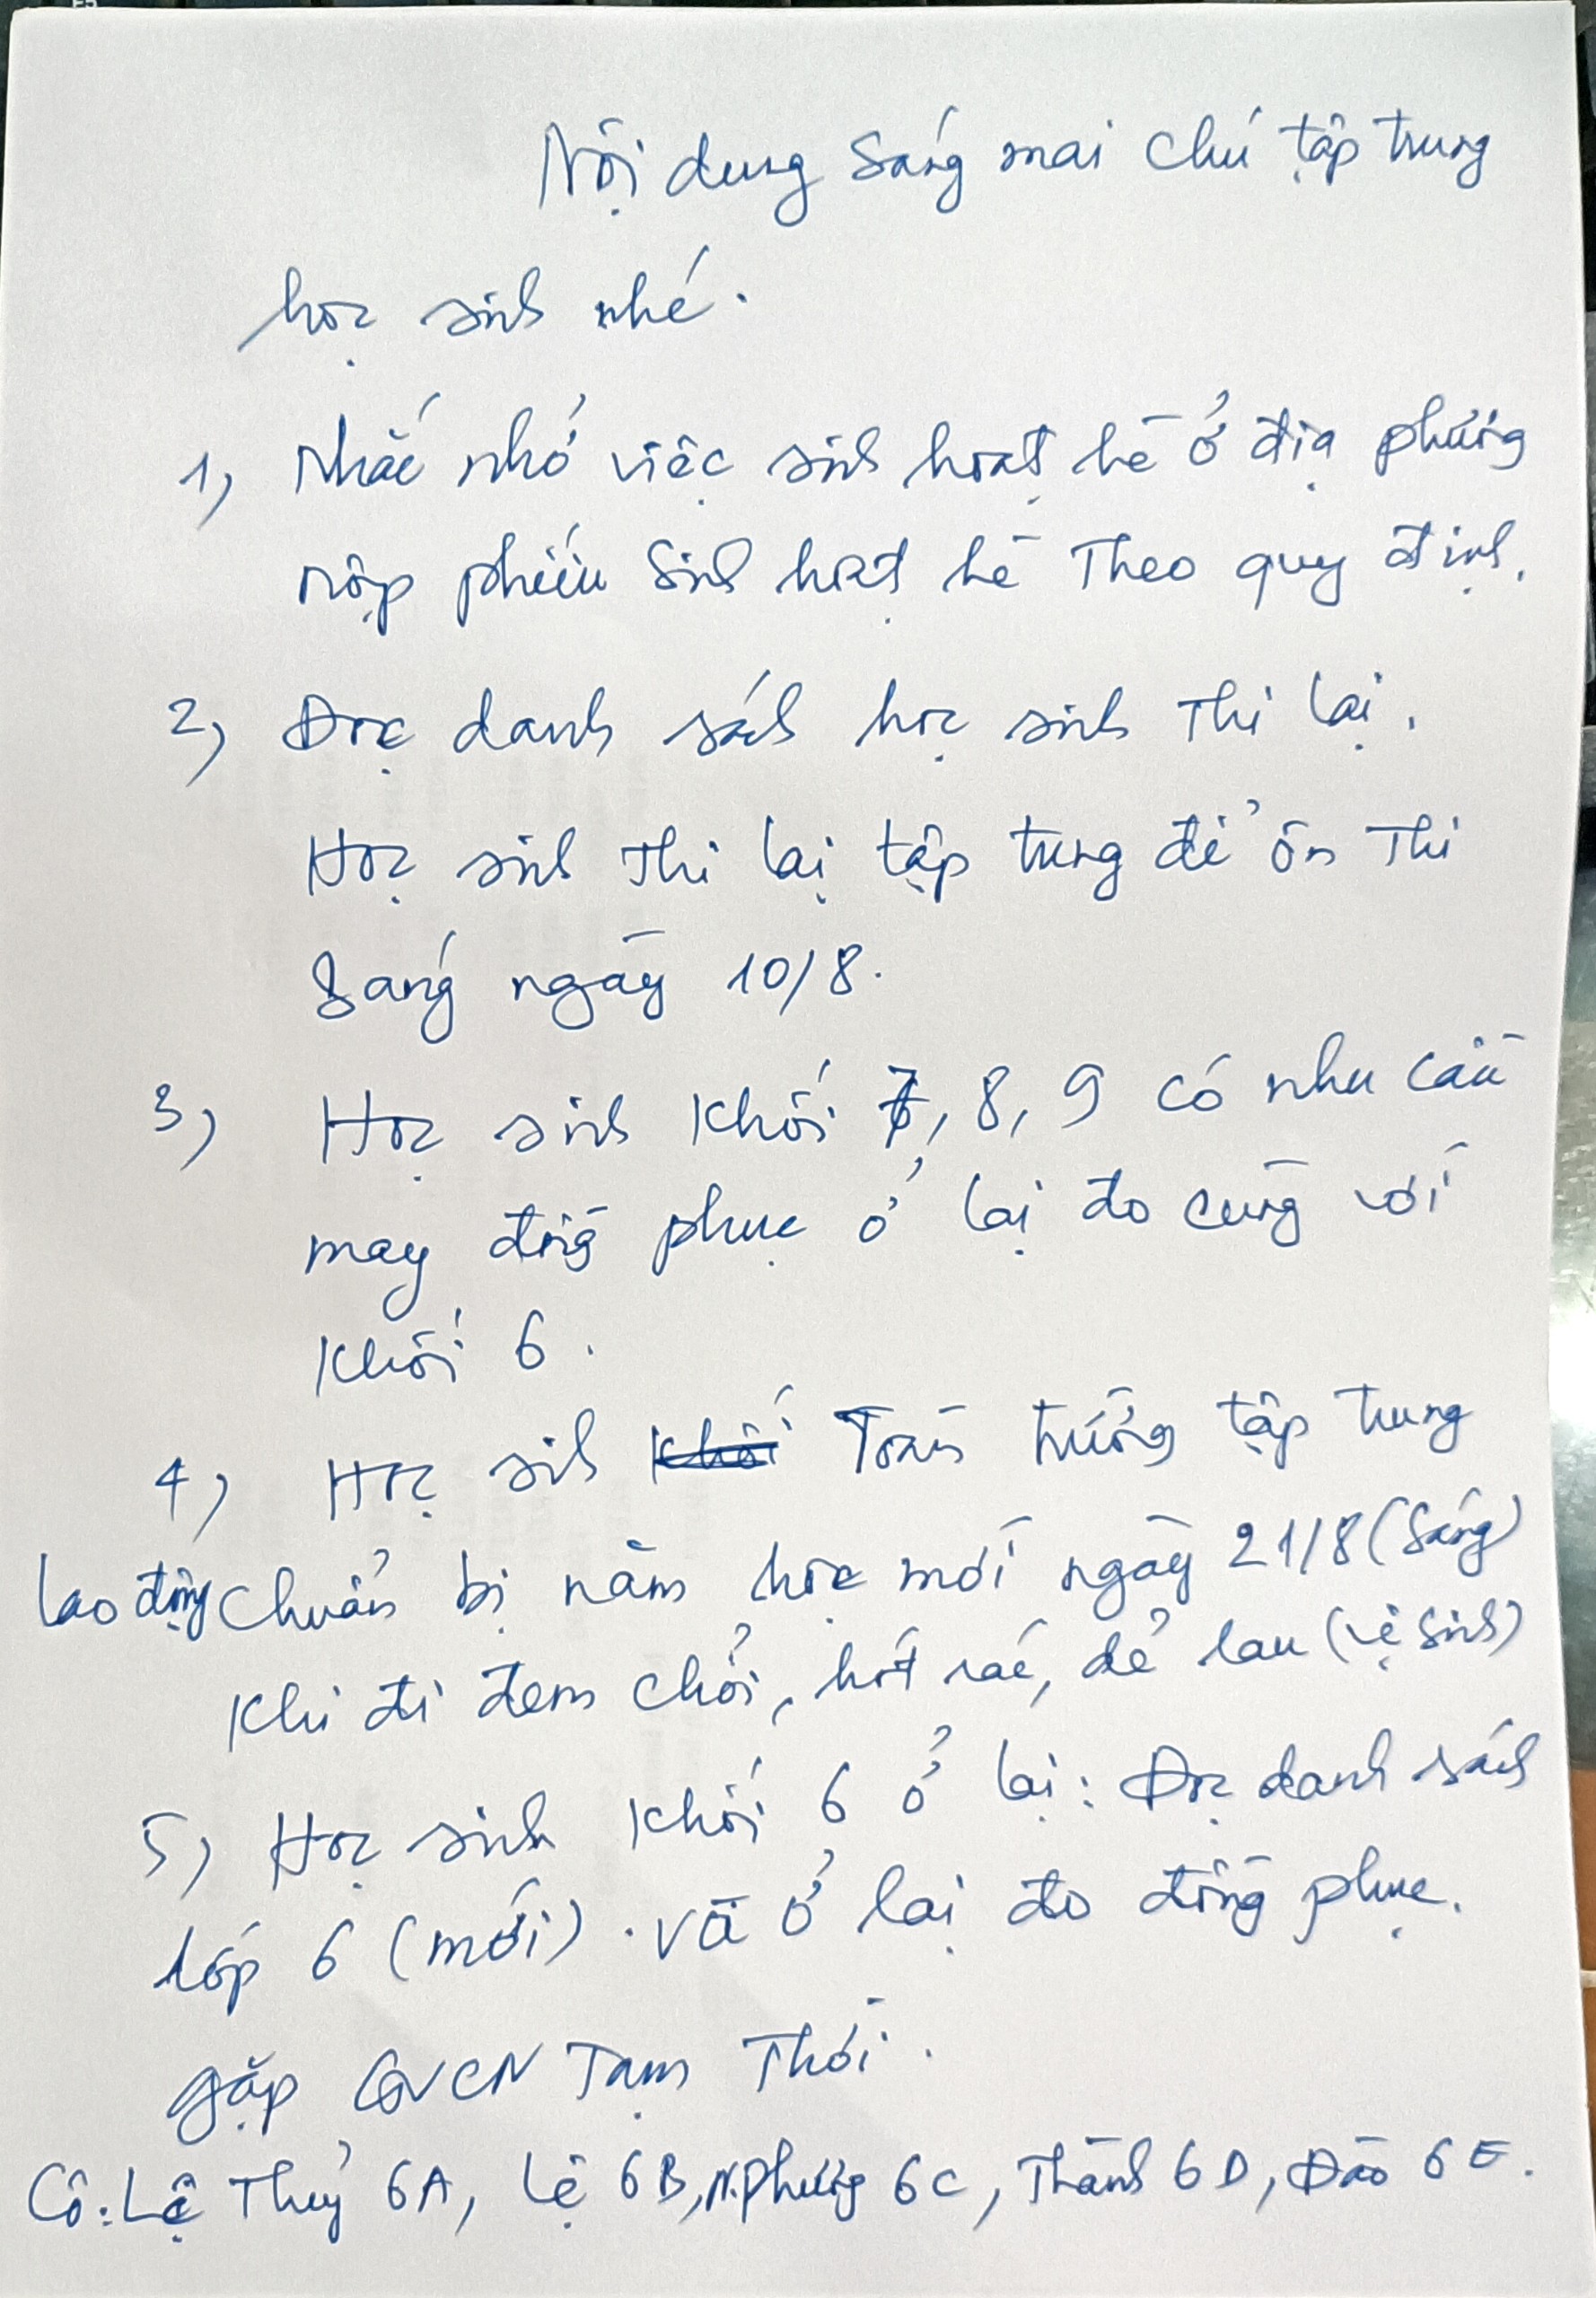 Nội dung sáng mai chú tập trung
học sinh nhé.
1, Nhắc nhở việc sinh hoạt hè ở địa phương
nộp phiếu sinh hoạt hè theo quy định.
2) Đọc danh sách học sinh thi lại.
Học sinh thi lại tập trung để ôn thi
sáng ngày 10/8.
3) Học sinh khối 7, 8, 9 có nhu cầu
may đồng phục ở lại đo cùng với
khối 6.
4) Học sinh khối Toàn trường tập trung
lao động chuẩn bị năm học mới ngày 21/8 (sáng)
Khi đi đem chổi, hót rác, dẻ lau (vệ sinh)
5) Học sinh khối 6 ở lại: Đọc danh sách
lớp 6 (mới). và ở lại đo đồng phục.
gặp GVCN Tạm Thời.
Cô: Lệ Thuỷ 6A, Lệ 6B, N.Phương 6C, Thành 6D, Đào 6E.